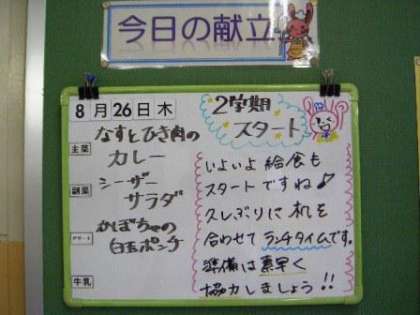 今日の献立
8月26日木
主菜
なすとひき肉の
カレー
副菜
シーザー
サラダ
デザート
かぼちゃの
白玉ポンチ
牛乳
2学期
スタート
いよいよ給食も
スタートですね♪
久しぶりに机を
合わせてランチタイムです。
準備は素早く
協力しましょう!!